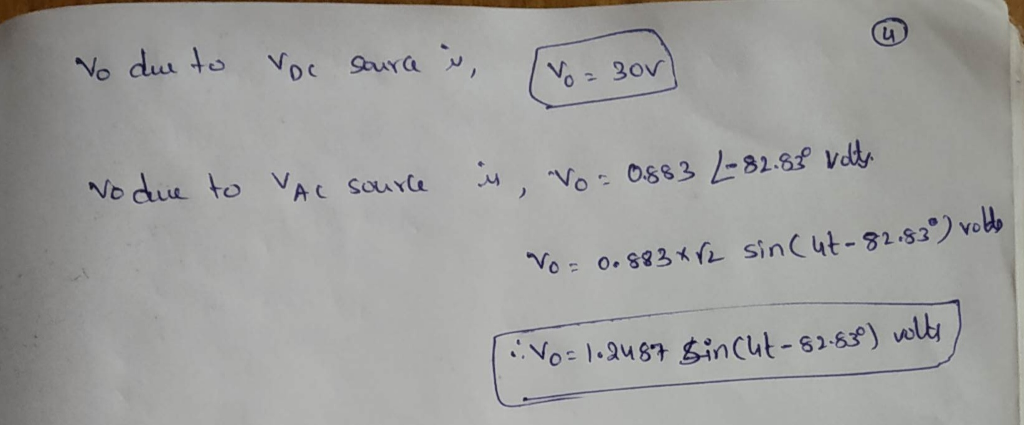 4
Vo due to VDC source is, Vo = 30V
Vo due to VAC source is, Vo = 0.883 ∠-82.83° volts.
Vo = 0.883 x √2 sin(4t - 82.83°) volts
∴ Vo = 1.2487 Sin(4t - 82.83°) volts